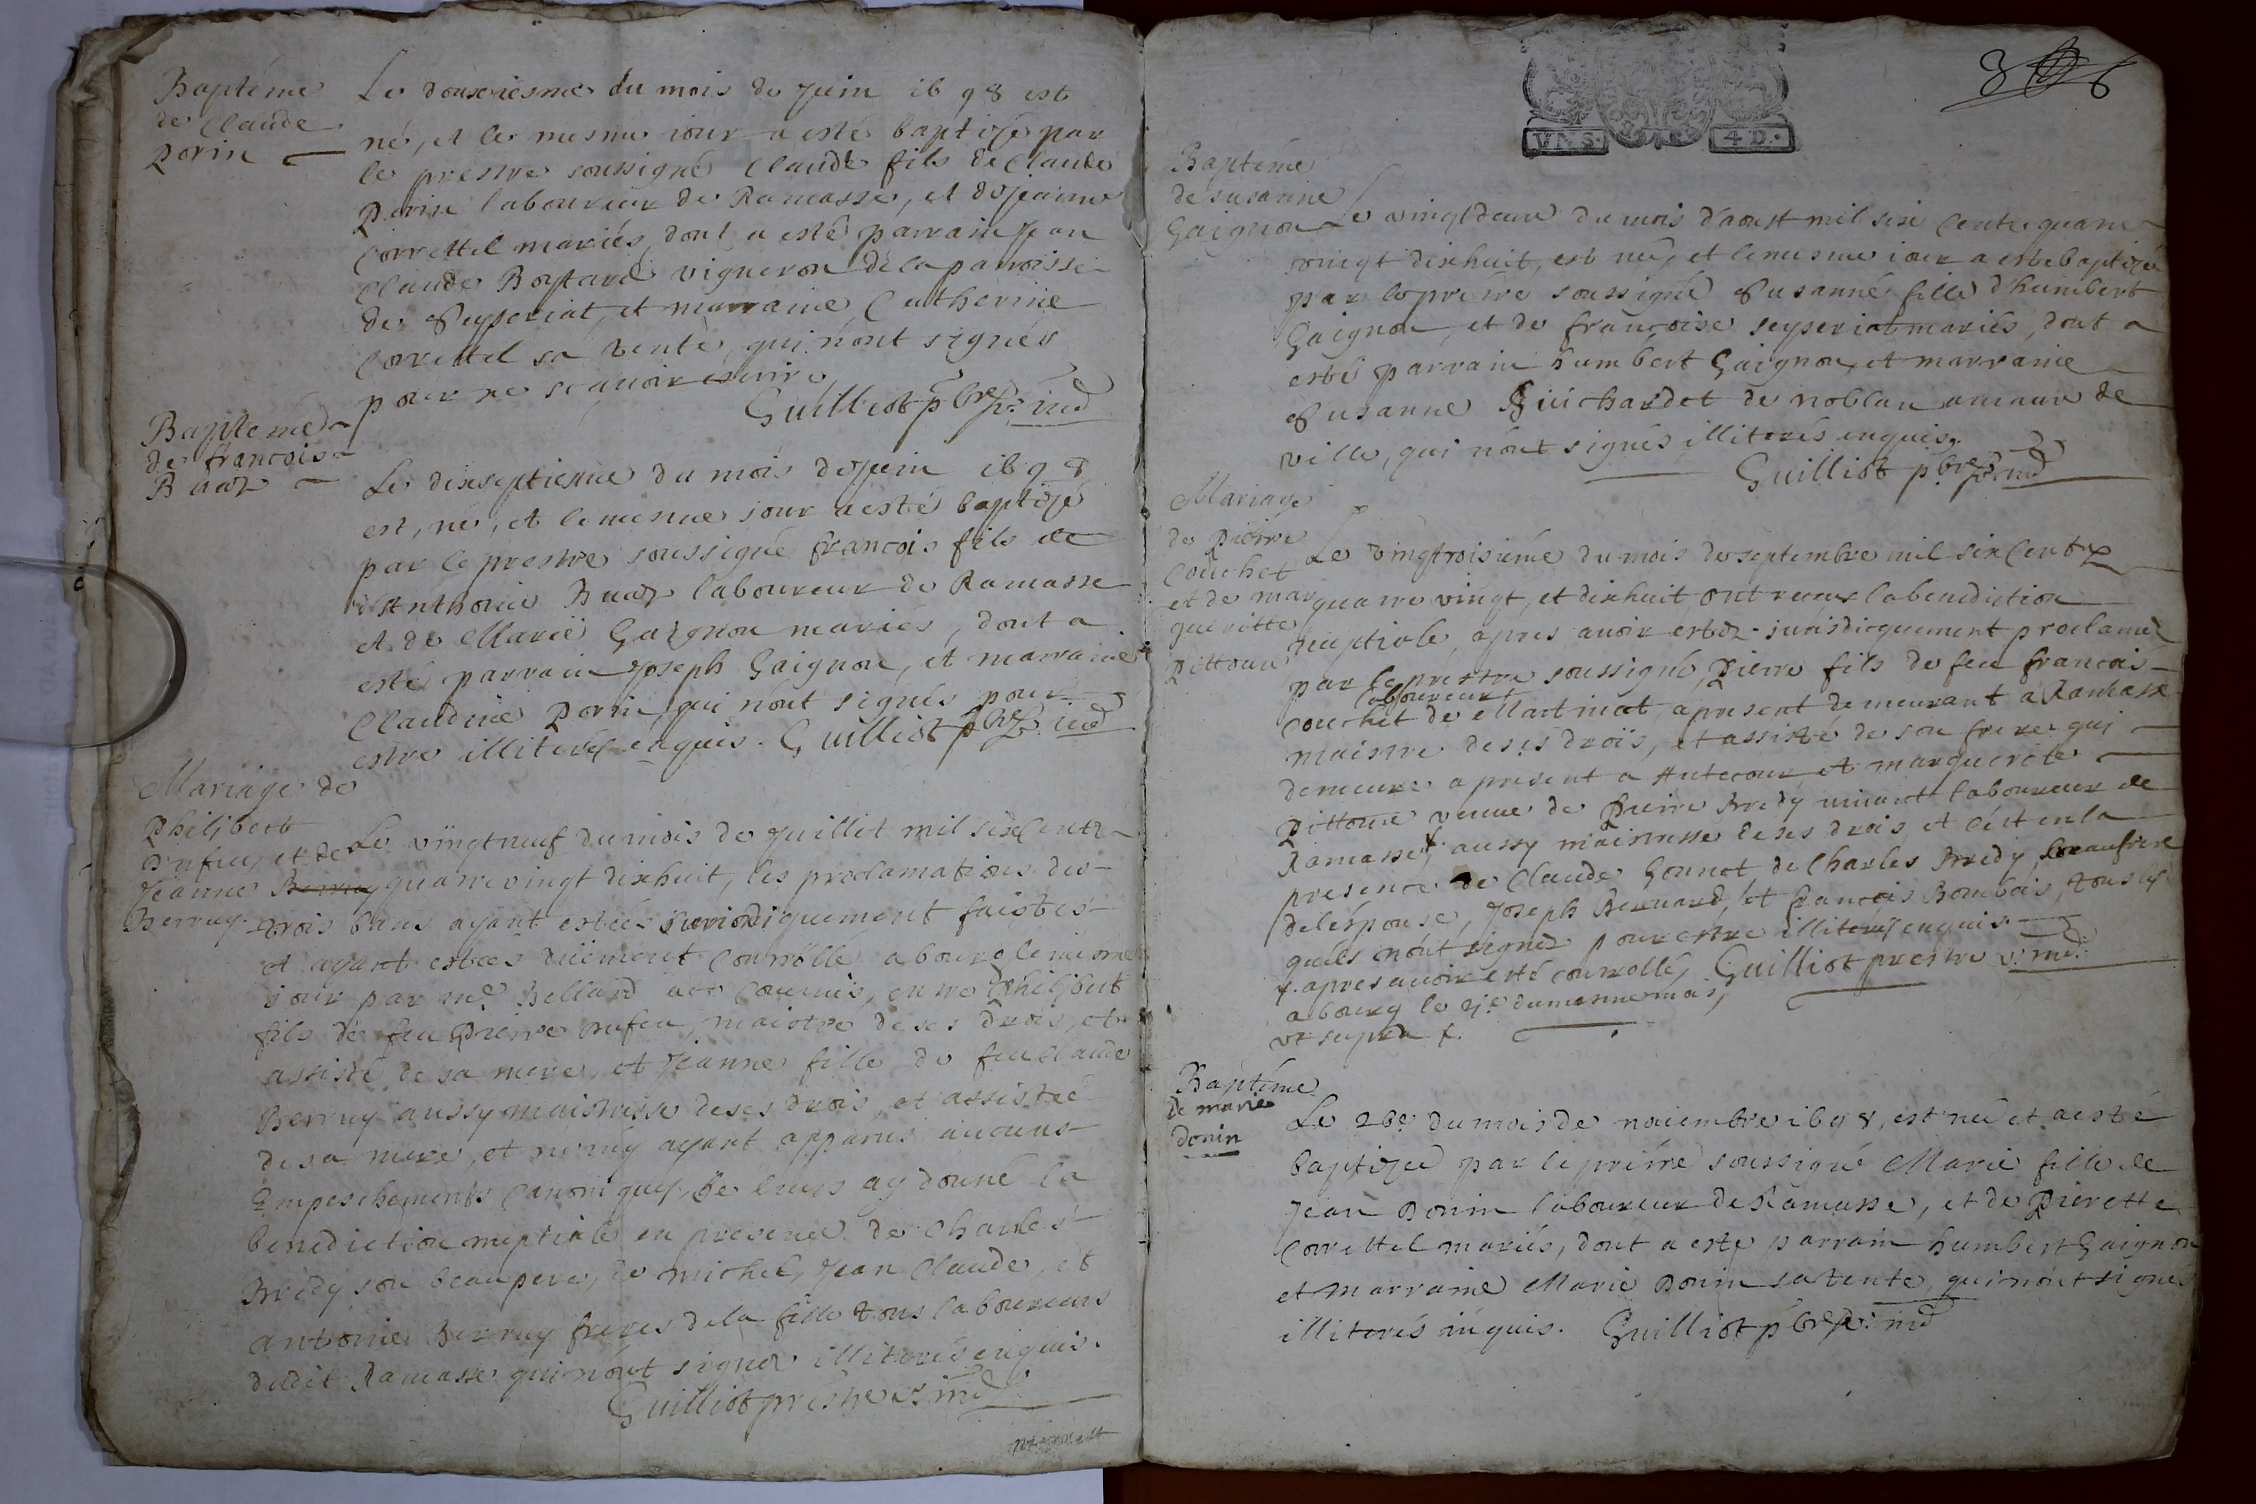 Baptéme
de Claude
Dorin
Le douxiesme du mois de Juin 1698 est
né, et le mesme iour a esté baptizé par
le prestre soussigné Claude fils de Claude
Dorin laboureur de Ramasse, et de Jeanne
Correttel mariés, dont a esté parrain Jean
Claude vigneron de la paroisse
de Seyseriat, et marraine Catherine
Correttel sa tente, qui n'ont signés
pour ne sçauoir escrire
Guilliot pbre
Baptéme
de francois
Buaz
Le dixseptiesme du mois de Juin 1698
est, né, et le mesme iour a esté baptizé
par le prestre soussigné francois fils de
Anthoine Buaz laboureur de Ramasse
et de Marie Gaignon mariés, dont a
esté parrain Joseph Gaignon, et marraine
Claudine Dorin, qui n'ont signés pour
estre illiterés enquis. Guilliot pbre
Mariage de
Philibert
et de
Jeanne
Berruy
Le vingtneuf du mois de Juillet mil six cents
quatre vingt dixhuit, les proclamations des
trois bans ayant estées Juridiquement faistes
et ayant estées düement Controllé a bourg le mesme
iour par mr Beliard entre Philibert
fils de feu Pierre maistre de ses drois, et
assisté de sa mere, et Jeanne fille de feu Claude
Berruy aussy maistresse de ses drois, et assistée
de sa mere, et ne m'éy ayant apparus aucuns
Empeschements Canoniques, Je leurs ay donné la
benediction nuptiale en presence de Charles
Bredy son beaupere, de michel, Jean Claude, et
antoine Berruy freres de la fille tous laboureurs
dudit Ramasse qui n'ont signés illiterés enquis.
Guilliot prestre
VN S. 4 D.
Baptéme
de susanne
Gaignon
Le vingtdeux du mois d'aoust mil six cents quatre
vingt dixhuit, est née, et le mesme iour a este baptizée
par le préstre soussigné Susanne fille d'humbert
Gaignon, et de françoise seyseriat mariés, dont a
esté parrain humbert Gaignon, et marraine
Susanne Guichardet de
ville, qui n'ont signés illiterés enquis.
Guilliot pbre
Mariage
de Pierre
Couchet
et de mar
gueritte
Pittoun
Le vingtroisiéme du mois de septembre mil six cent
quatre vingt, et dixhuit, ont receus la benediction
nuptiale, apres auoir estez juridicquement proclamez
par le prestre soussigné, Pierre fils de feu francois
laboureur
Couchet de Martinat, a present demeurant a Ramasse
maistre de ses drois, et assisté de son frere qui
demeure a present a Autecour et marguerite
Pittoun veuue de Pierre Bredy viuant laboureur de
Ramasse aussy maistresse de ses drois, et c'est en la
presence de Claude Gonnet, de Charles Bredy beaufrere
de l'éspouse, Joseph Bernard, et francois Bombois, tous les
quels n'ont signés pour estre illiterés enquis
apres auoir esté controllés Guilliot prestre
a bourg le 21e du mesme mois,
vt supra
Baptéme
de marie
donin
Le 26e du mois de nouembre 1698, est née et a esté
baptizée par le préstre soussigné Marie fille de
Jean Donin laboureur de Ramasse, et de Pierette
Correttel mariés, dont a esté parrain humbert Gaignon
et marraine Marie Donin sa tente, qui n'ont signés
illiterés enquis. Guilliot pbre